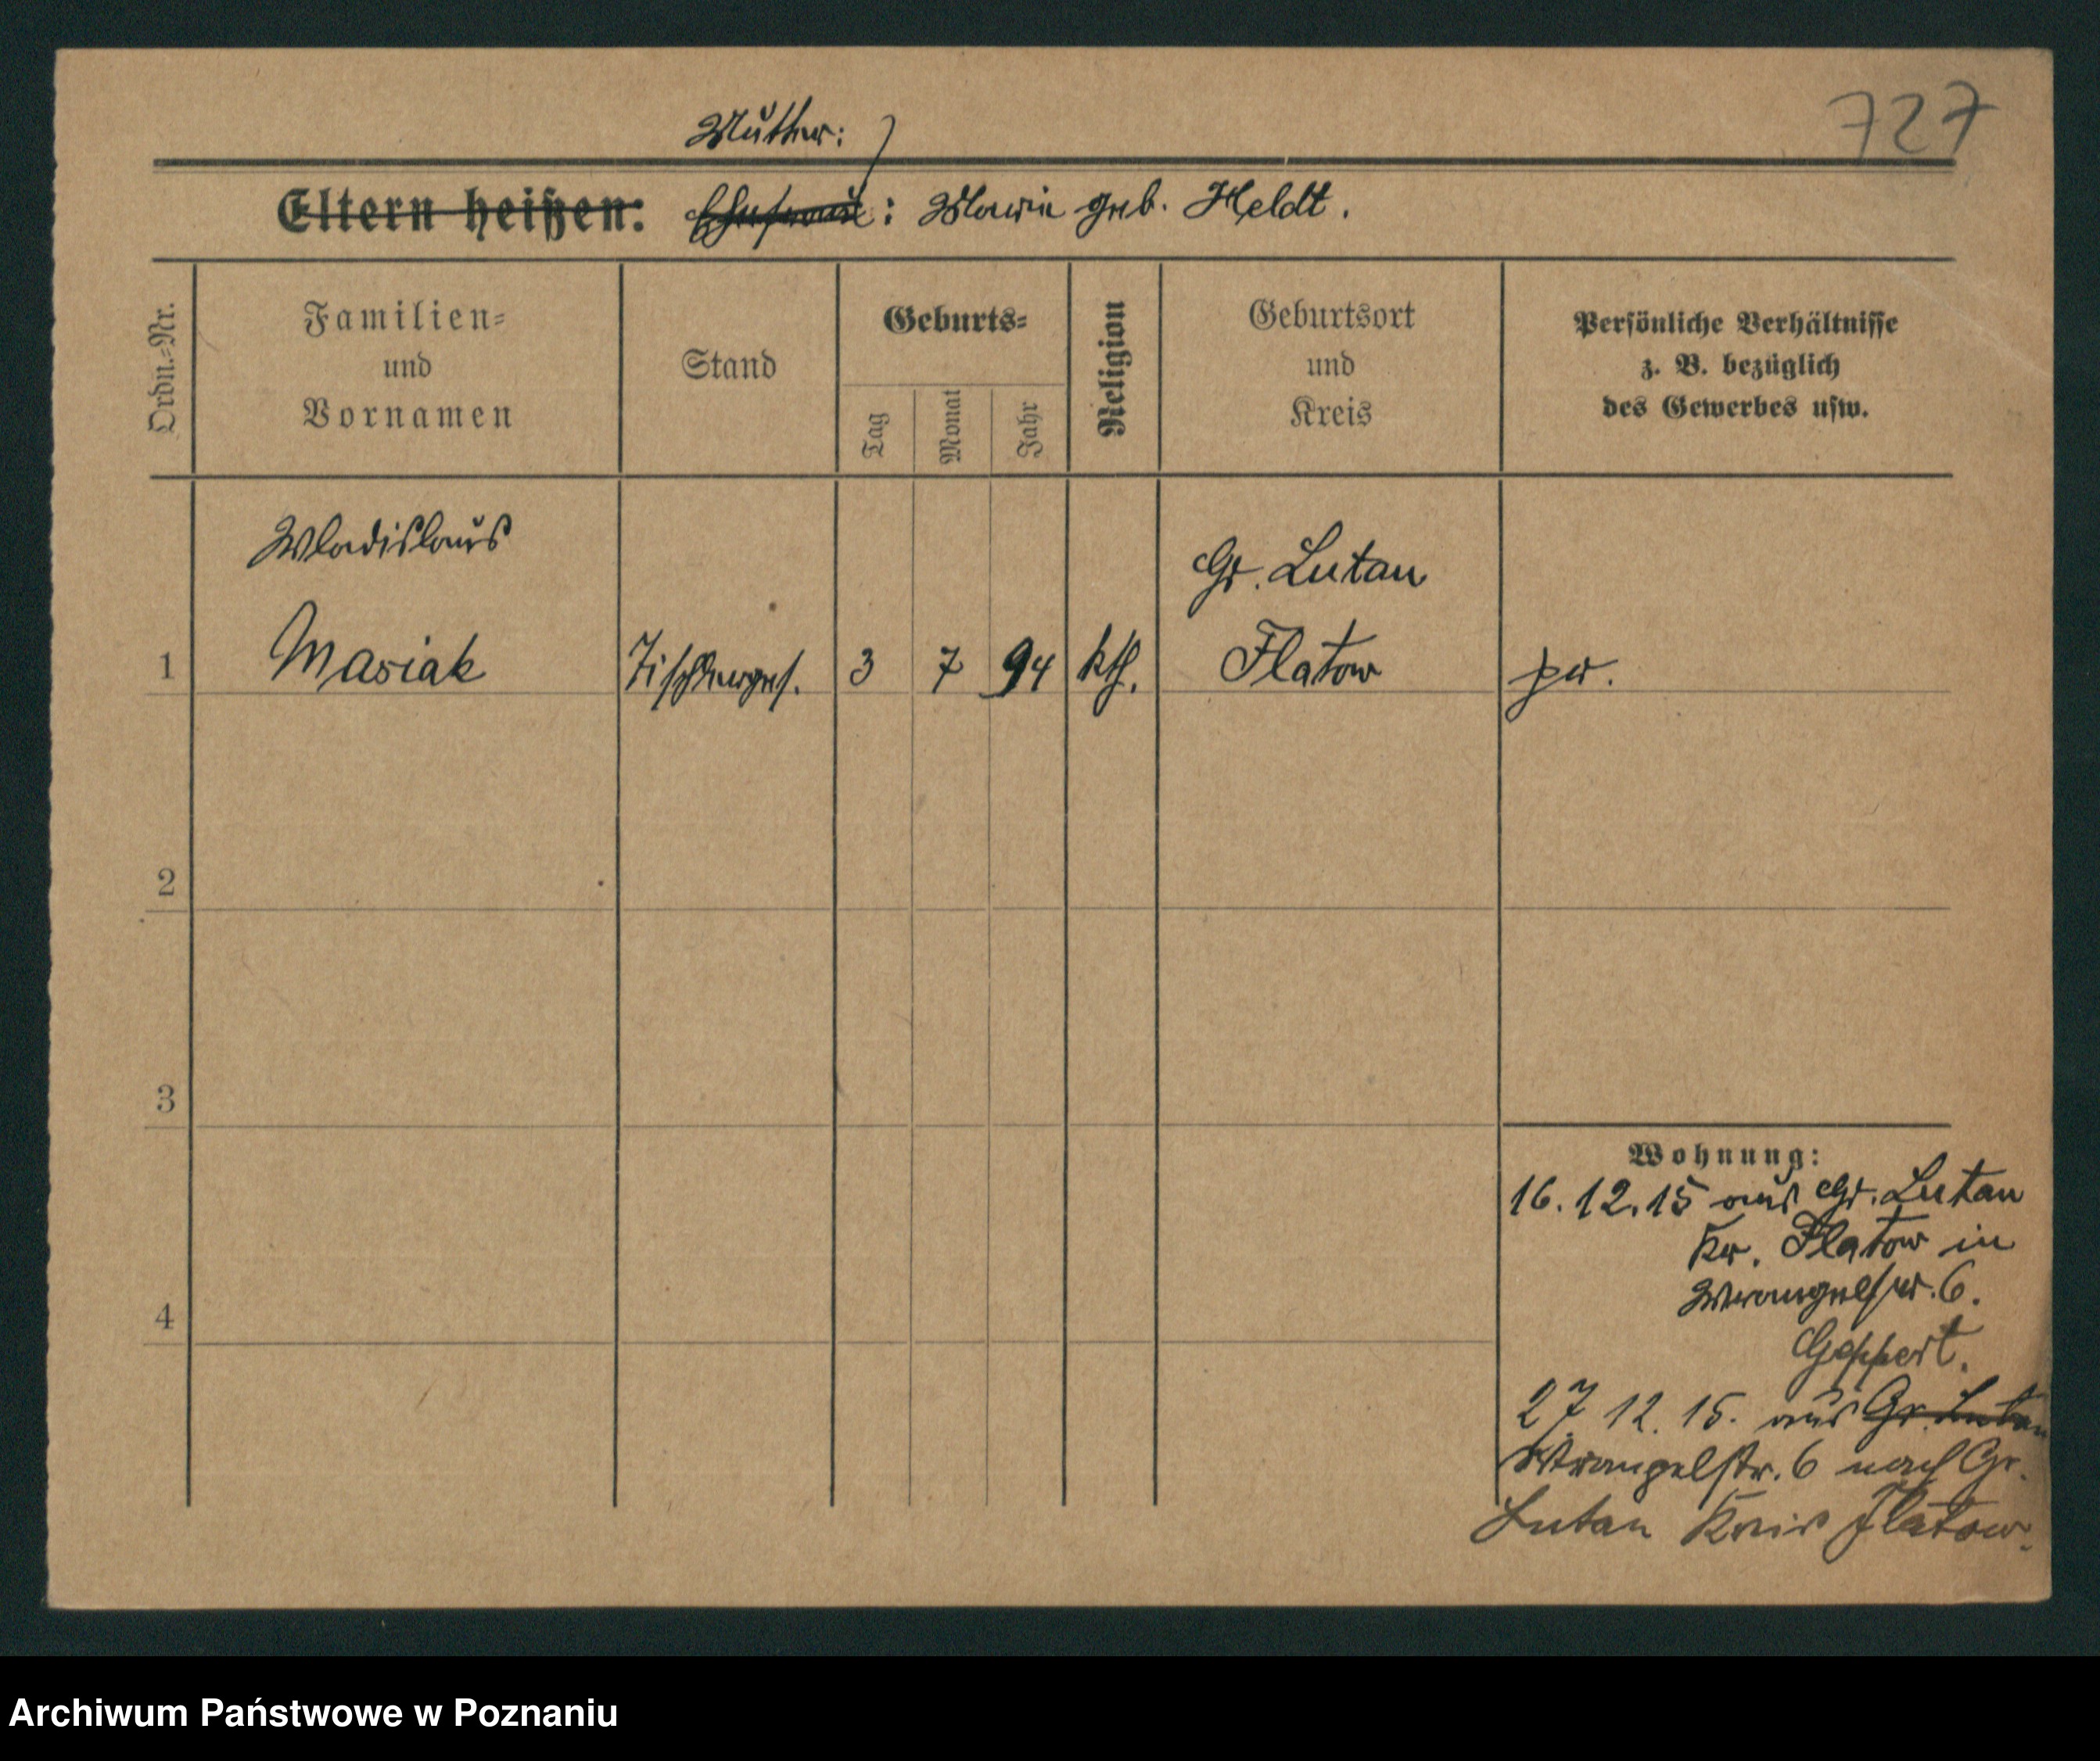 727
Mutter:
Eltern heißen: Ehefrau: Marie geb. Heldt.
Ordn.-Nr.
Familien-
und
Vornamen
Stand
Geburts-
Tag
Monat
Jahr
Religion
Geburtsort
und
Kreis
Persönliche Verhältnisse
z. B. bezüglich
des Gewerbes usw.
Wladislaus
Gr. Lutau
1 Masiak Tischlerges. 3 7 94 kth. Flatow pr.
2
3
4
Wohnung:
16.12.15 aus Gr. Lutau
Kr. Flatow in
Wrangelstr. 6.
Geppert.
27 12. 15. aus Gr. Lutau
Wrangelstr. 6 nach Gr.
Lutau Kreis Flatow.
Archiwum Państwowe w Poznaniu